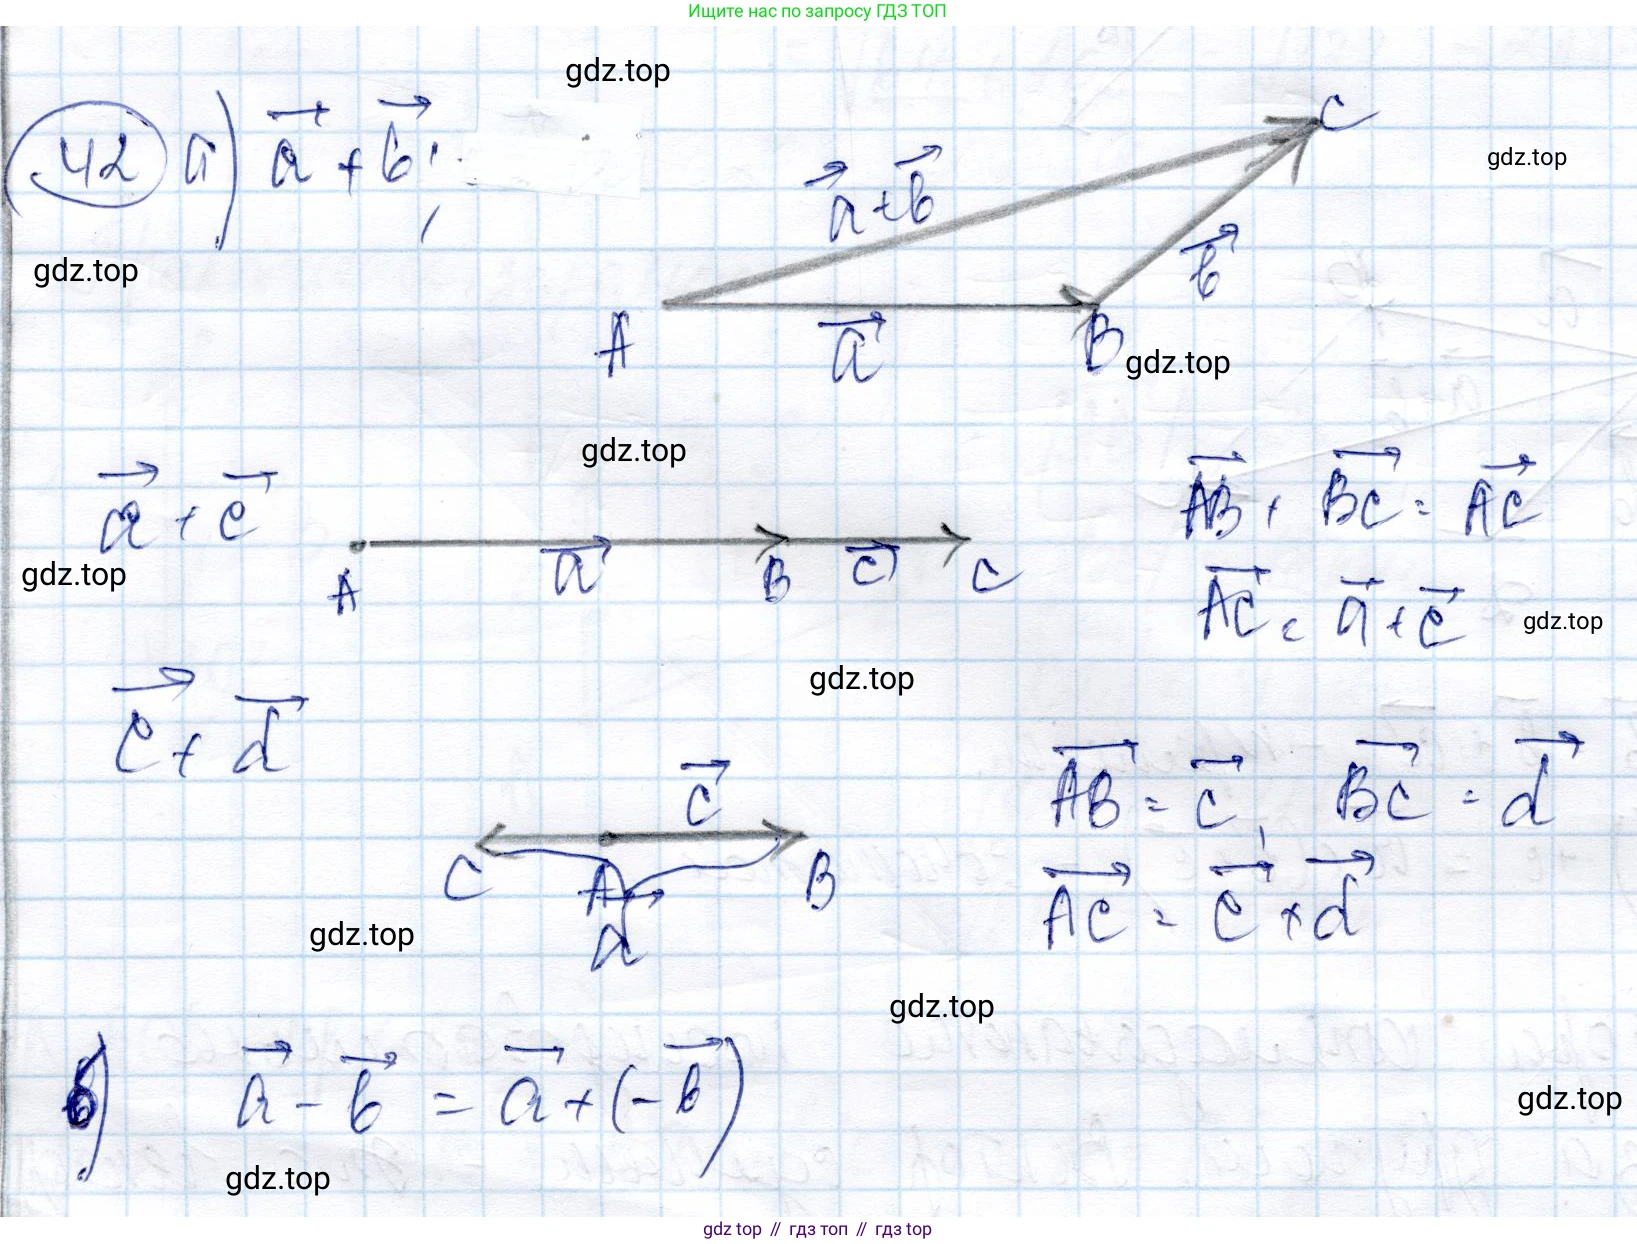 Ищите нас по запросу ГДЗ ТОП
gdz.top
42 а) a + b;
a + b
C
gdz.top
b
gdz.top
A
a
B
gdz.top
gdz.top
a + c
A
a
B
c
C
AB + BC = AC
gdz.top
AC = a + c
gdz.top
gdz.top
c + d
c
AB = c, BC = d
C
A
B
d
AC = c + d
gdz.top
gdz.top
б) a - b = a + (-b)
gdz.top
gdz.top
gdz top // гдз топ // гдз top